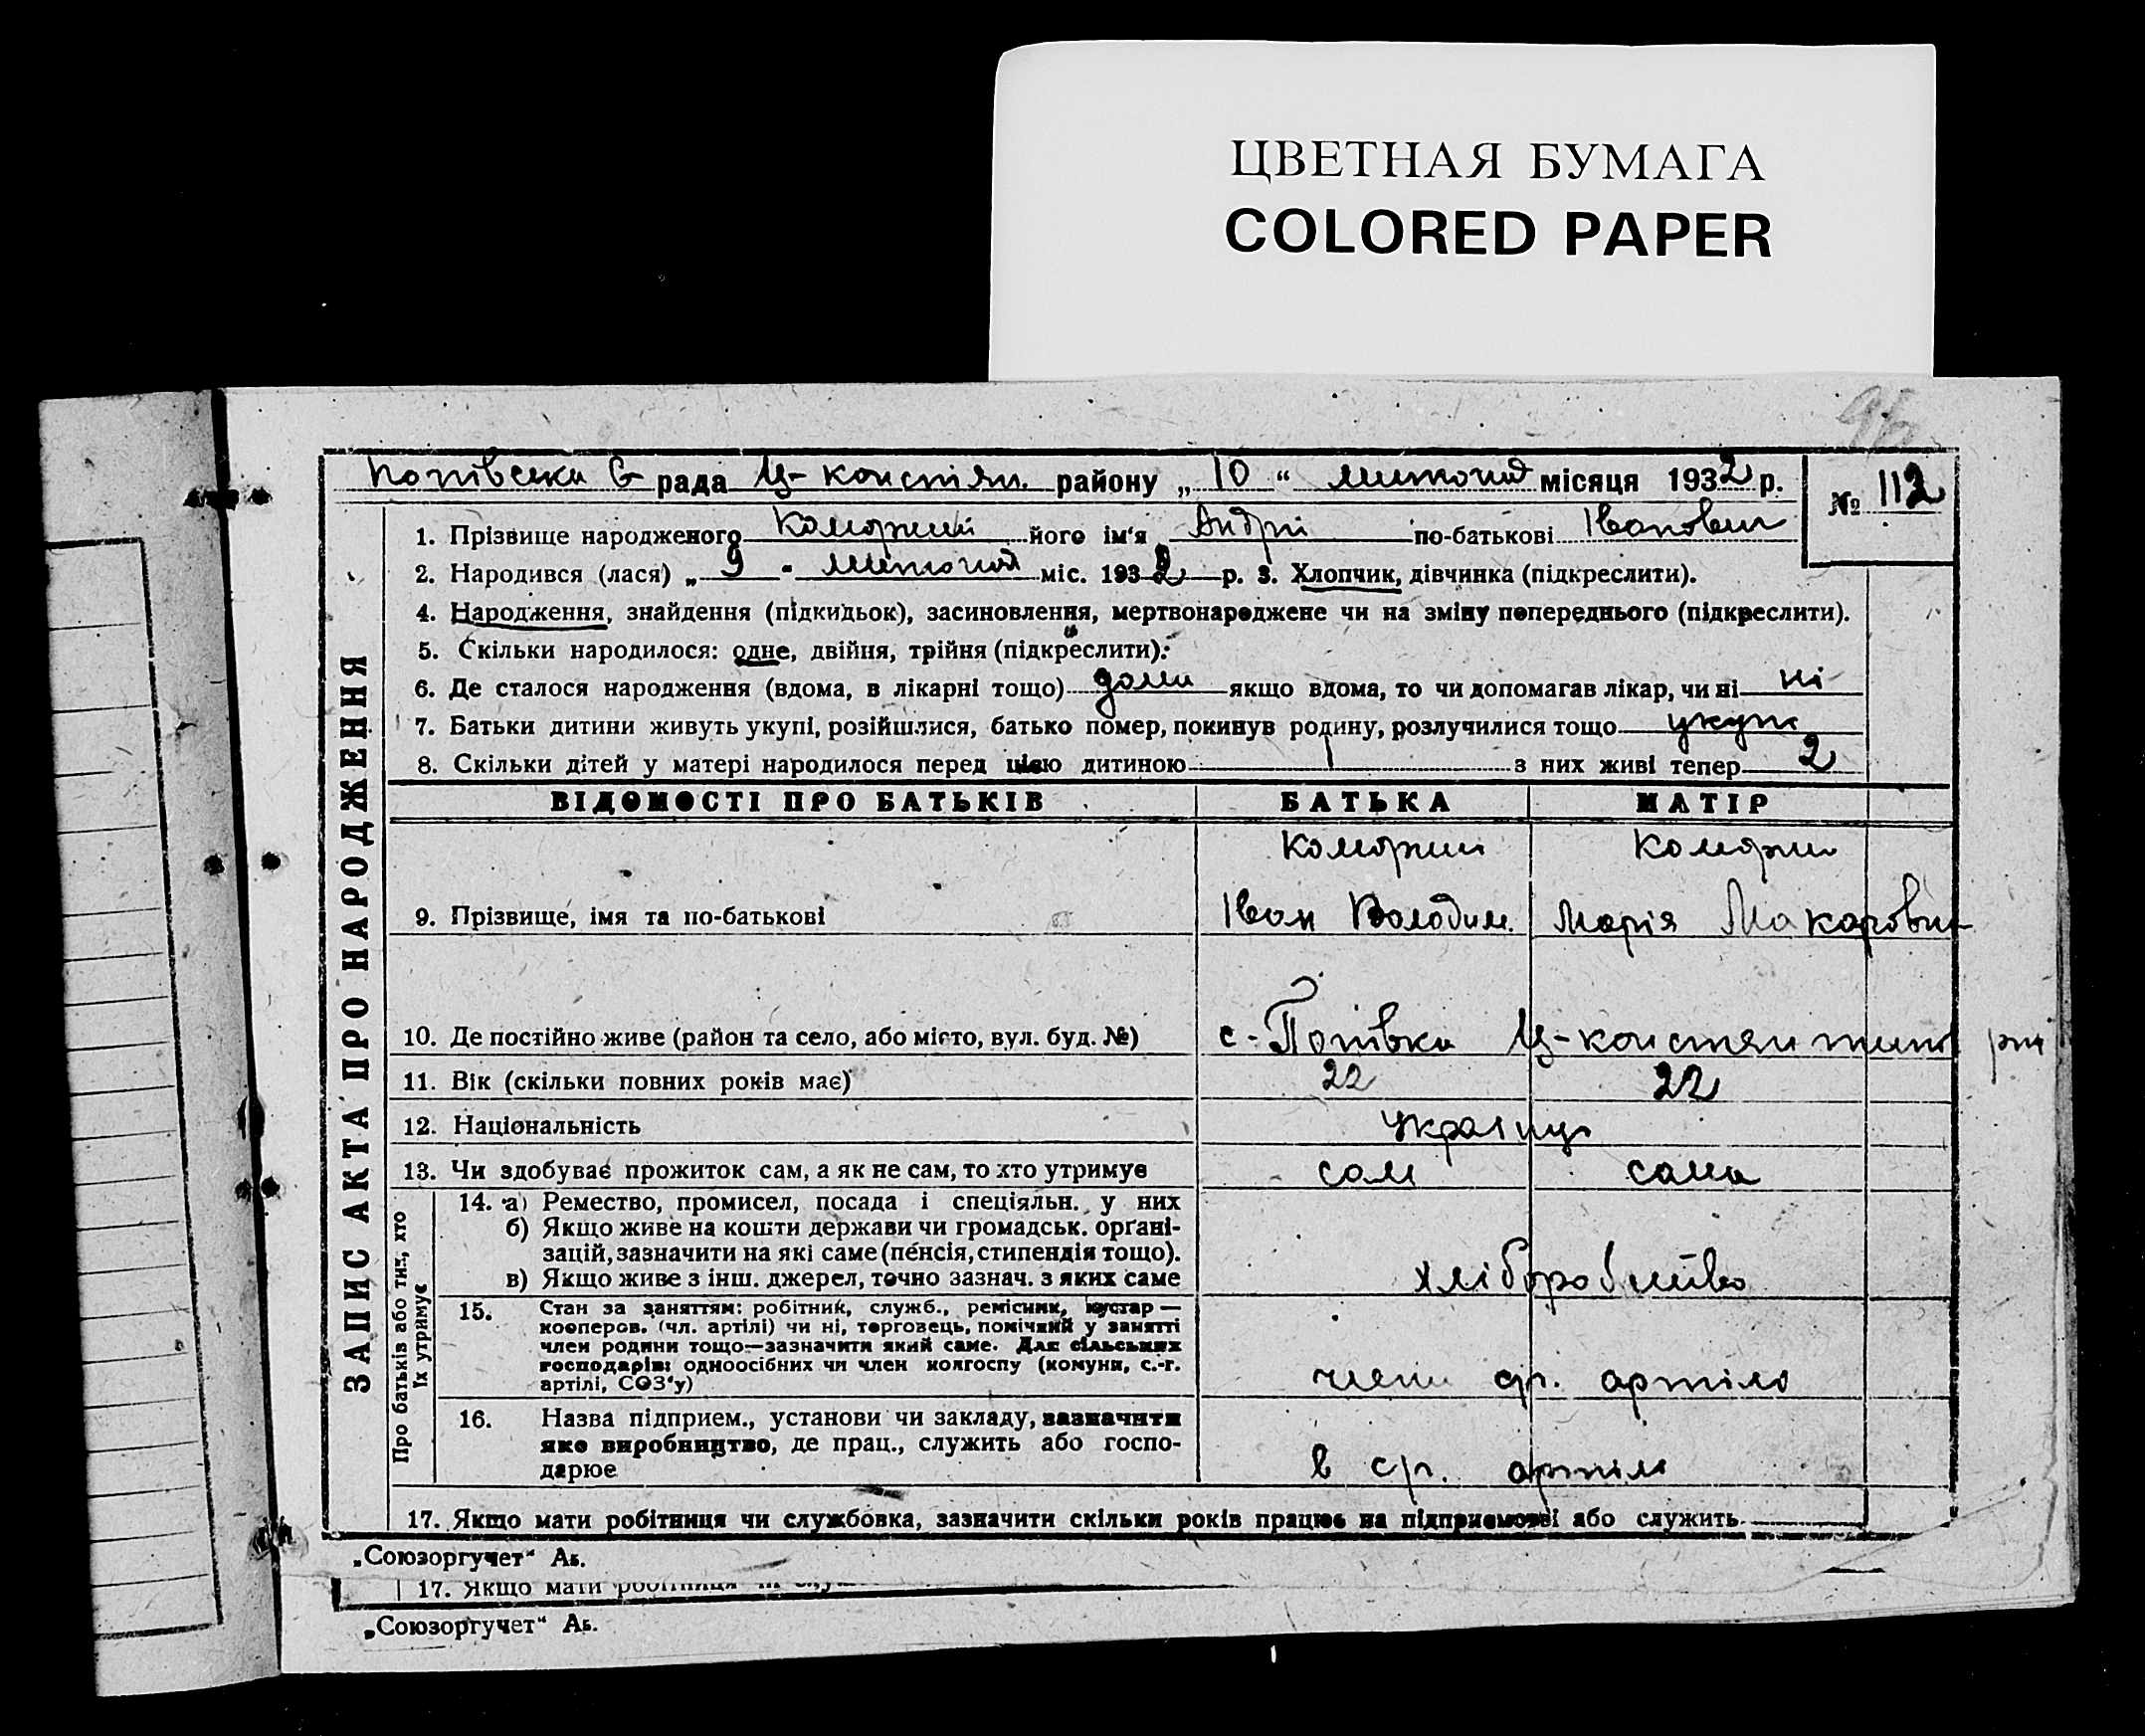 ЦВЕТНАЯ БУМАГА
COLORED PAPER
96
Попівська С- рада Ц-констян. району „ 10 “ лютого місяця 1932 р. № 112
1. Прізвище народженого його ім'я Андрі по-батькові Іванович
2. Народився (лася) „ 9 “ лютого міс. 1932 р. 3. Хлопчик, дівчинка (підкреслити).
4. Народження, знайдення (підкидьок), засиновлення, мертвонароджене чи на зміну попереднього (підкреслити).
5. Скільки народилося: одне, двійня, трійня (підкреслити).
6. Де сталося народження (вдома, в лікарні тощо) дома якщо вдома, то чи допомагав лікар, чи ні ні
7. Батьки дитини живуть укупі, розійшлися, батько помер, покинув родину, розлучилися тощо укупі
8. Скільки дітей у матері народилося перед цією дитиною 1 з них живі тепер 2
ЗАПИС АКТА ПРО НАРОДЖЕННЯ
ВІДОМОСТІ ПРО БАТЬКІВ БАТЬКА МАТІР
9. Прізвище, імя та по-батькові Іван Володим. Марія Макаровн
10. Де постійно живе (район та село, або місто, вул. буд. №) с-Попівка Ц-констянтино рні
11. Вік (скільки повних років має) 22 22
12. Національність Українці
13. Чи здобуває прожиток сам, а як не сам, то хто утримує сам сама
Про батьків або тих, хто їх утримує
14. а) Ремество, промисел, посада і спеціяльн. у них
б) Якщо живе на кошти держави чи громадськ. орґані-
зацій, зазначити на які саме (пенсія, стипендія тощо).
в) Якщо живе з інш. джерел, точно зазнач. з яких саме хліборобство
15. Стан за заняттям: робітник, служб., ремісник, кустар —
кооперов. (чл. артілі) чи ні, торговець, помічний у занятті
член родини тощо—зазначити який саме. Для сільських
господарів: одноосібних чи член колгоспу (комуни, с.-г.
артілі, СОЗ'у) член ср. артіло
16. Назва підприєм., установи чи закладу, зазначити
яке виробництво, де прац., служить або госпо-
дарює в ср. артіло
17. Якщо мати робітниця чи службовка, зазначити скільки років працює на підприємстві або служить
„Союзоргучет“ Аь.
17. Якщо мати робітниця
„Союзоргучет“ Аь.